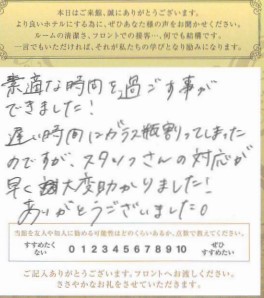 本日はご来館、誠にありがとうございます。
より良いホテルにする為に、ぜひあなた様の声をお聞かせください。
ルームの清潔さ、フロントでの接客…、何でも結構です。
一言でもいただければ、それが私たちの学びとなり励みになります。
素適な時間を過ごす事が
できました!
遅い時間にガラス瓶割ってしまった
のですが、スタッフさんの対応が
早く大変助かりました!
ありがとうございました。
当館を友人や知人に勧める可能性はどのくらいあるか、点数で教えてください。
すすめたく
ない
0 1 2 3 4 5 6 7 8 9 10
ぜひ
すすめたい
ご記入ありがとうございます。フロントへお渡しください。
ささやかなお礼をさせていただきます。